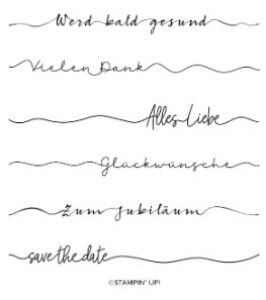 Werd bald gesund
Vielen Dank
Alles Liebe
Glückwünsche
Zum Jubiläum
save the date
©STAMPIN' UP!